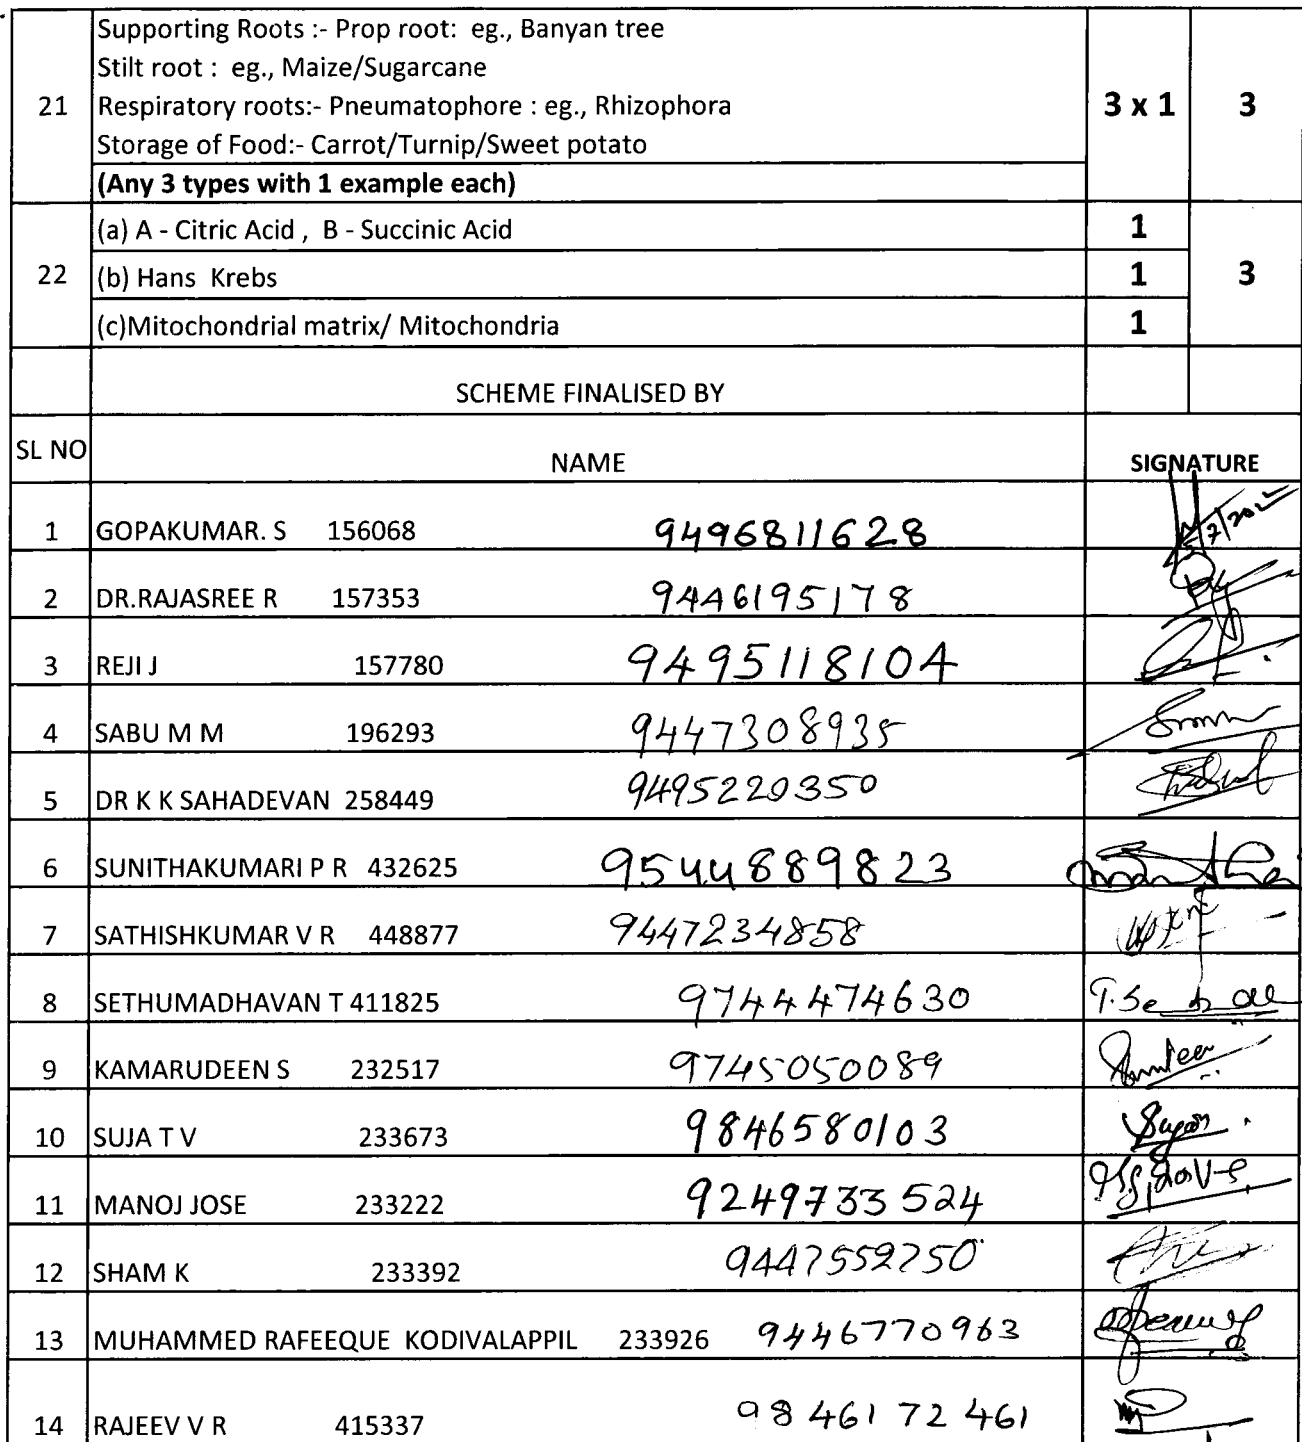 Supporting Roots :- Prop root: eg., Banyan tree
Stilt root : eg., Maize/Sugarcane
21 Respiratory roots:- Pneumatophore : eg., Rhizophora 3 x 1 3
Storage of Food:- Carrot/Turnip/Sweet potato
(Any 3 types with 1 example each)
(a) A - Citric Acid , B - Succinic Acid 1
22 (b) Hans Krebs 1 3
(c)Mitochondrial matrix/ Mitochondria 1
SCHEME FINALISED BY
SL NO NAME SIGNATURE
1 GOPAKUMAR. S 156068 9496811628
2 DR.RAJASREE R 157353 9446195178
3 REJI J 157780 9495118104
4 SABU M M 196293 9447308935
5 DR K K SAHADEVAN 258449 9495220350
6 SUNITHAKUMARI P R 432625 9544889823
7 SATHISHKUMAR V R 448877 9447234858
8 SETHUMADHAVAN T 411825 9744474630
9 KAMARUDEEN S 232517 9745050089
10 SUJA T V 233673 9846580103
11 MANOJ JOSE 233222 9249733524
12 SHAM K 233392 9447552750
13 MUHAMMED RAFEEQUE KODIVALAPPIL 233926 9446770963
14 RAJEEV V R 415337 9846172461